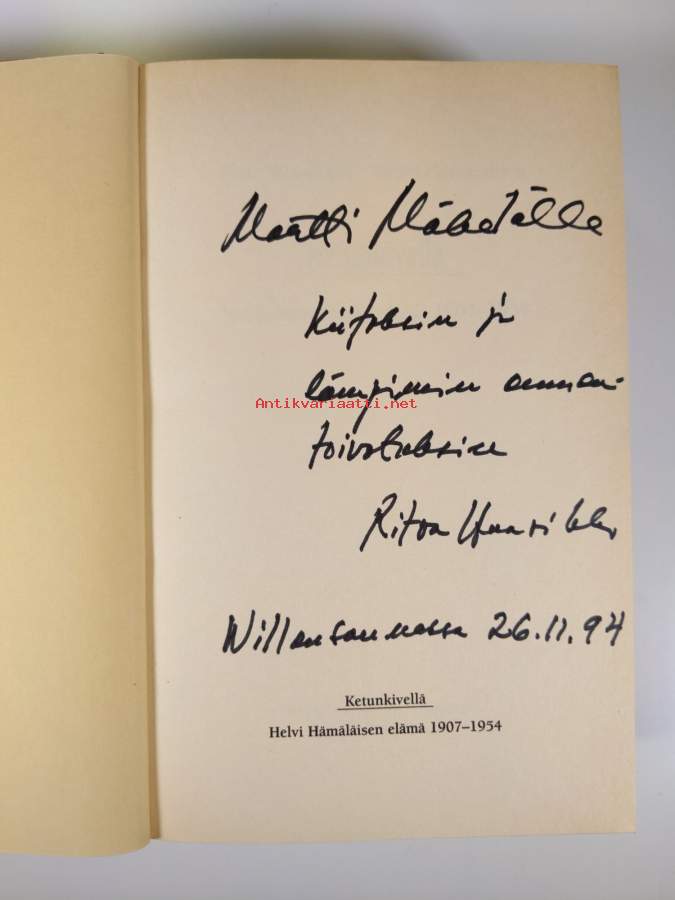 Matti Mäkelälle
Kiitoksin ja
lämpimin onnen-
Antikvariaatti.net
toivotuksin
Ritva Haavikko
26.11.94
Ketunkivellä
Helvi Hämäläisen elämä 1907–1954